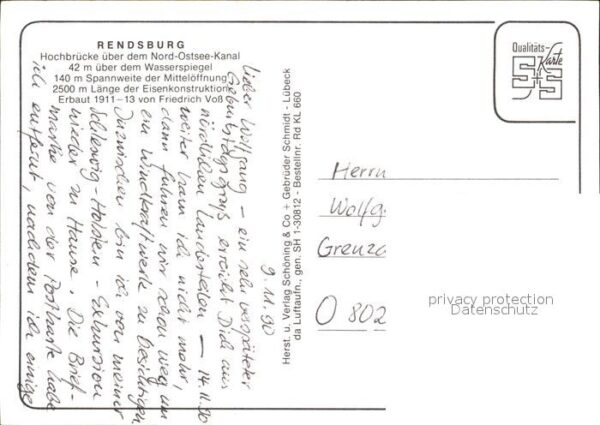 RENDSBURG
Hochbrücke über dem Nord-Ostsee-Kanal
42 m über dem Wasserspiegel
140 m Spannweite der Mittelöffnung
2500 m Länge der Eisenkonstruktion
Erbaut 1911–13 von Friedrich Voß
9.11.90
Lieber Wolfgang – ein sehr verspäteter
Geburtstagsgruß erreicht Dich aus
nördlichen Landesteilen — 14.11.90
weiter kam ich nicht mehr,
dann fuhren wir schon weg um
ein Windkraftwerk zu besichtigen
Inzwischen bin ich von meiner
Schleswig-Holstein-Exkursion
wieder zu Hause. Die Brief-
marke von der Postkarte habe
ich entfernt, nachdem ich einige
Herst. u. Verlag Schöning & Co + Gebrüder Schmidt - Lübeck
da Luftaufn., gen. SH 1-30812 - Bestellnr. Rd KL 660
Qualitäts-
Karte
S+S
Herrn
Wolfg
Grenza
O 802
privacy protection
Datenschutz